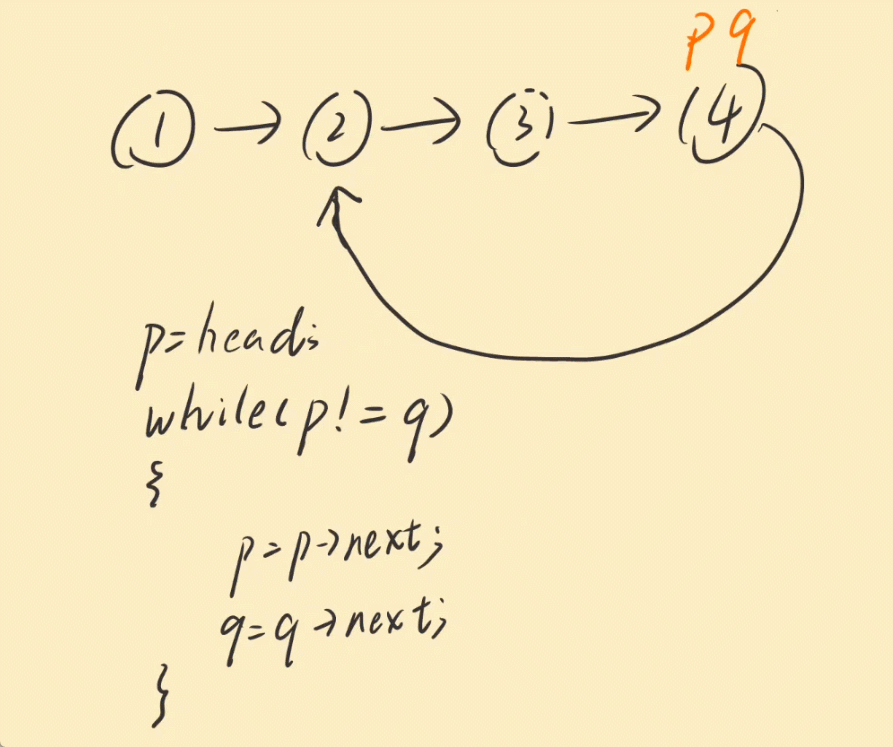 p q
1 → 2 → 3 → 4
p=head;
while(p!=q)
{
p=p->next;
q=q->next;
}